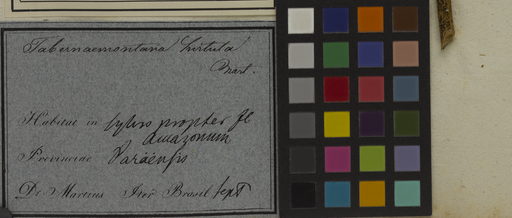 Tabernaemontana hirtula
Mart.
Habitat in sylvis propter fl
Amazonum
Provinciae Paräensis
Dr Martius Iter Brasil